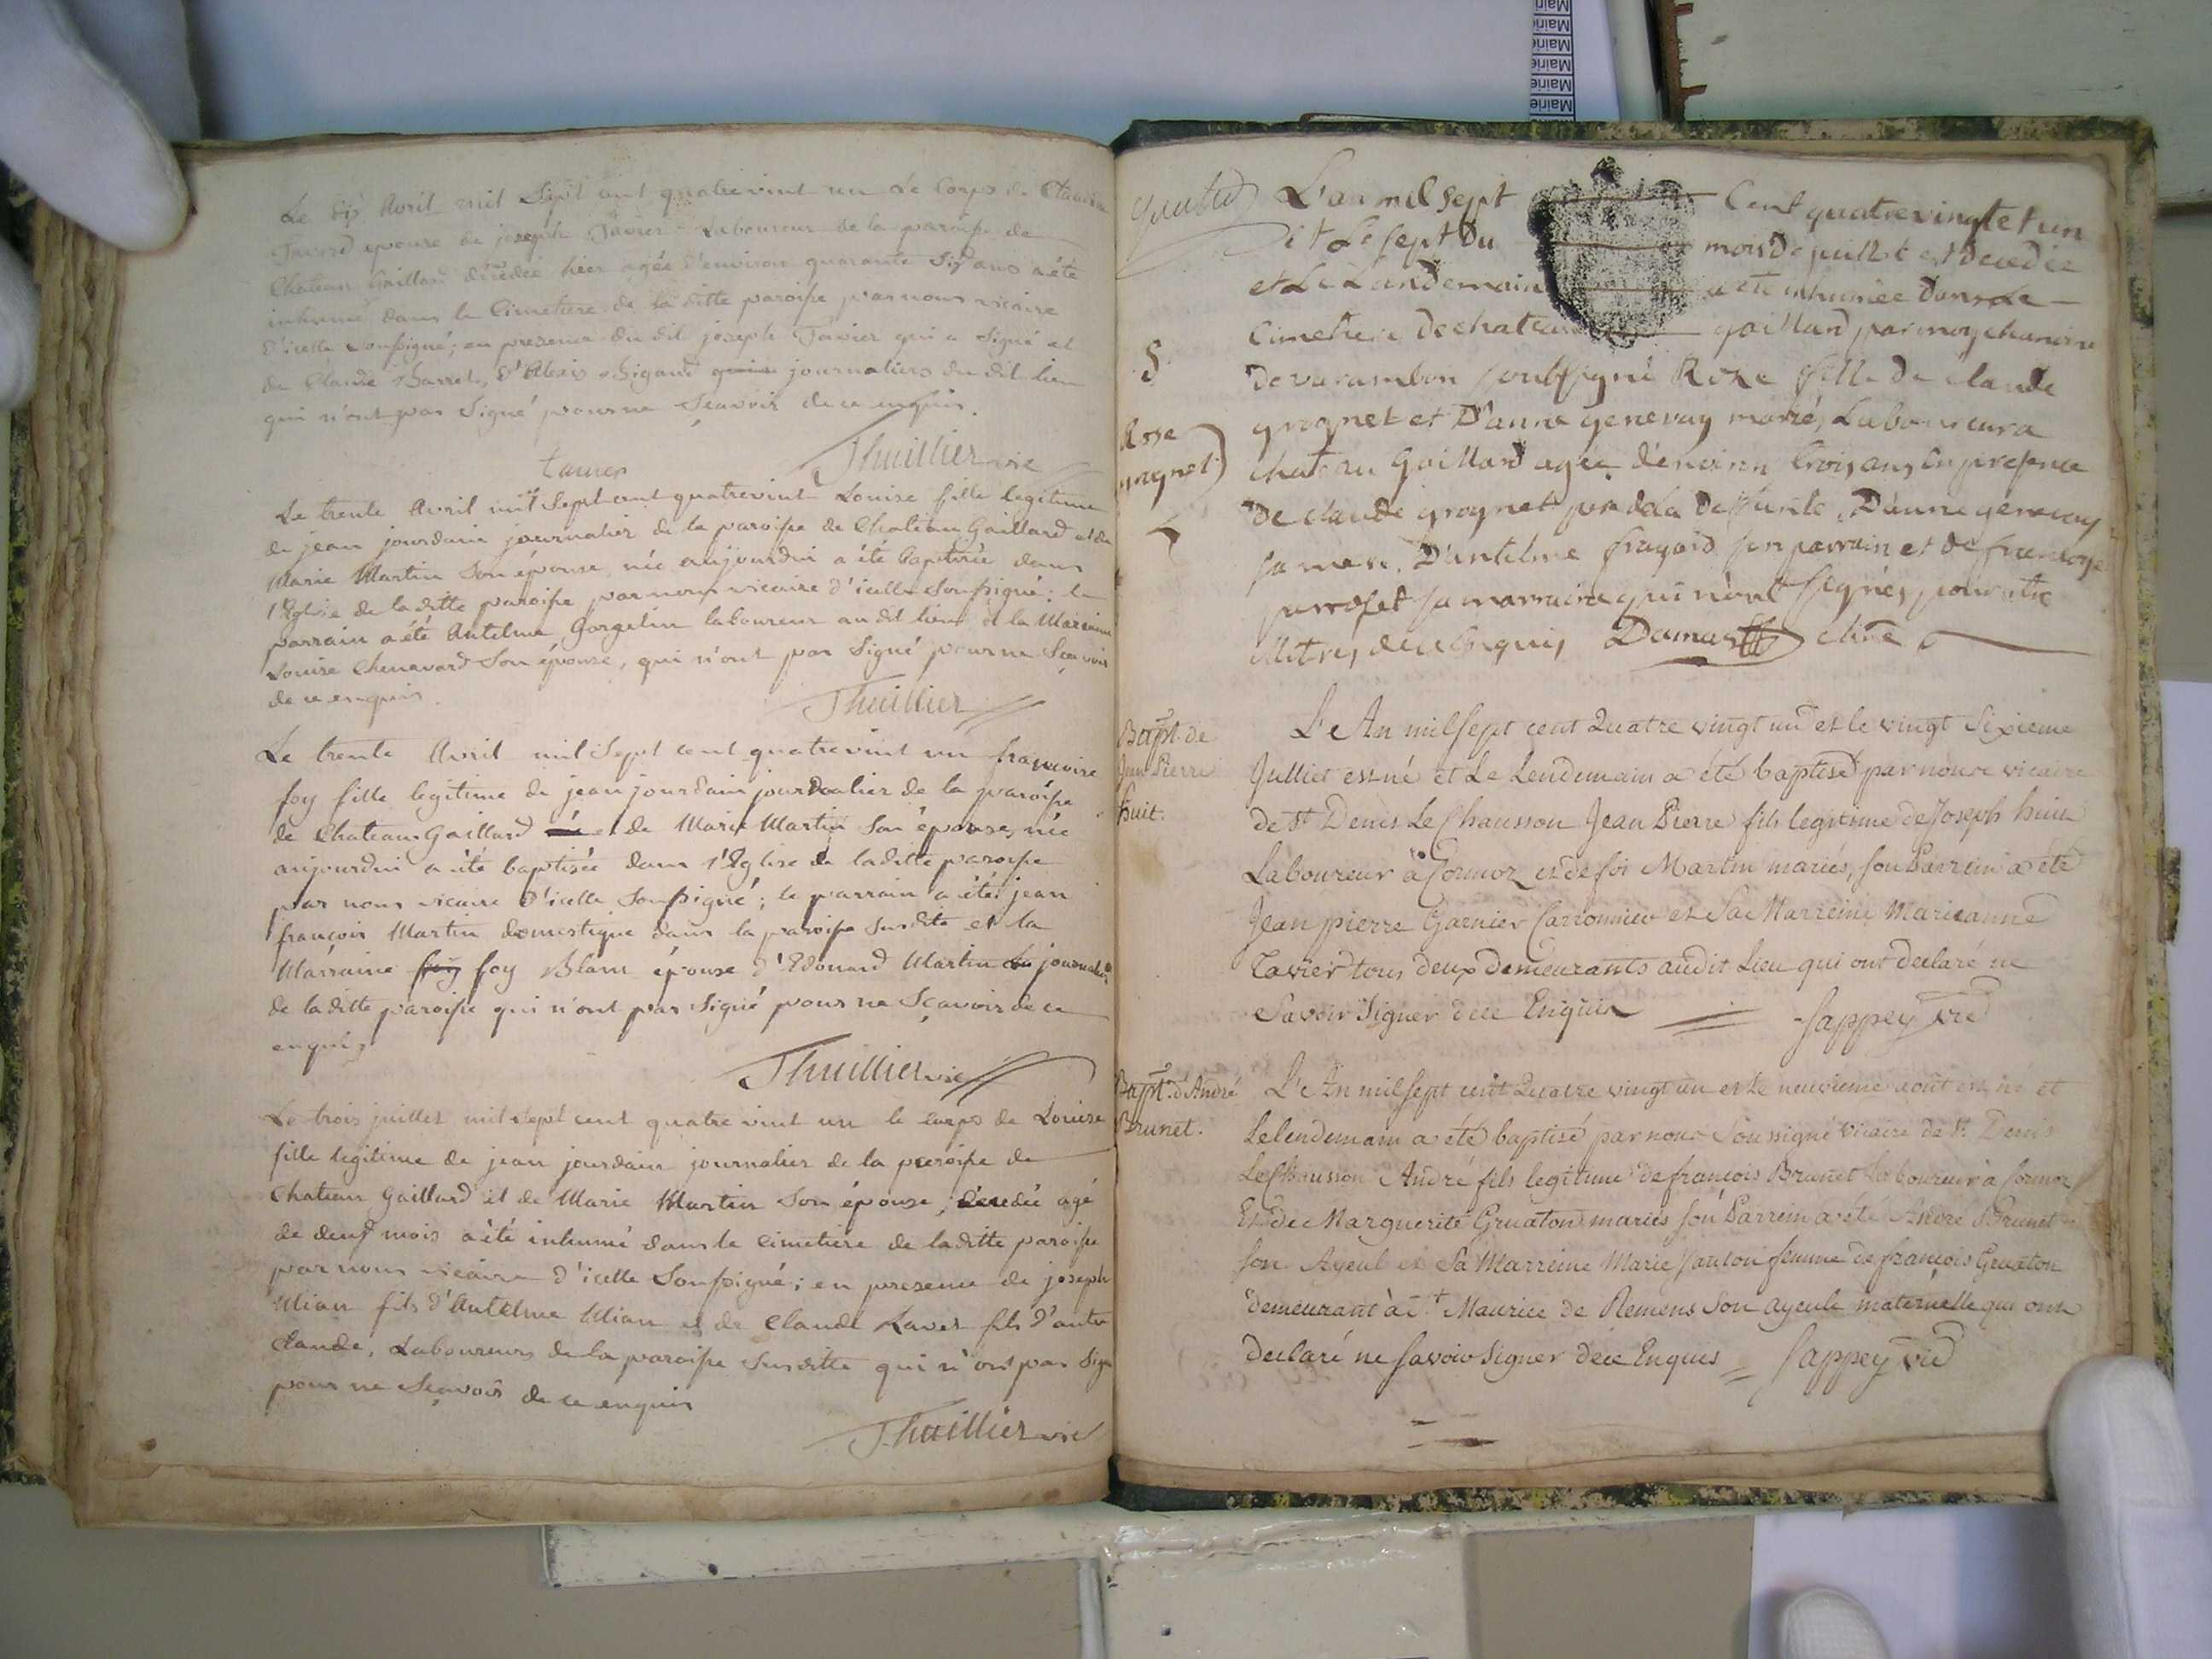 Le six Avril mil Sept cent quatrevint un Le Corps de Claudine
Tavier epouse de joseph Tavier Laboureur de la paroisse de
Chateau Gaillard décédée hier agée d'environ quarante Six ans a été
inhumé dans le Cimetiere de la ditte paroisse par nous vicaire
d'icelle soussigné; en presence du dit joseph Tavier qui a Signé et
de Claude Barret, d'Alexis Bigaud journaliers du dit lieu
qui n'ont pas Signé pour ne Sçavoir de ce enquis.
tavier Thuillier vic
Le trente Avril mil Sept cent quatrevint Louise fille legitime
de jean jourdain journalier de la paroisse de Chateau Gaillard et de
Marie Martin Son épouse, née aujourdui a été baptisée dans
l'Eglise de laditte paroisse par nous vicaire d'icelle Soussigné; le
parrain a été Antelme Gorgelin laboureur au dit lieu et la Marraine
Louise Chenavard Son épouse, qui n'ont pas Signé pour ne Sçavoir
de ce enquis.
Thuillier
Le trente Avril mil Sept cent quatrevint un françoise
foy fille legitime de jean jourdain journalier de la paroisse
de Chateau Gaillard et de Marie Martin Son épouse, née
aujourdui a été baptisée dans l'Eglise de laditte paroisse
par nous vicaire d'icelle Soussigné; le parrain a été jean
françois Martin domestique dans la paroisse Susdite et la
Marraine foy Blanc épouse d'Edouard Martin journalier
de laditte paroisse qui n'ont pas Signé pour ne Sçavoir de ce
enquis
Thuillier vic
Le trois juillet mil Sept cent quatre vint un le corps de Louise
fille legitime de jean jourdain journalier de la paroisse de
Chateau Gaillard et de Marie Martin Son épouse, décedée agé
de deux mois a été inhumé dans le cimetiere de laditte paroisse
par nous vicaire d'icelle Soussigné; en presence de joseph
Mian fils d'Antelme Mian et de Claude Ravet fils d'autre
Claude, Laboureurs de la paroisse Susditte qui n'ont pas Signé
pour ne Sçavoir de ce enquis
Thuillier vic
L'an mil sept Cent quatre vingt et un
et Le sept du mois de juillet est decedée
et Le Landemain a été inhumée dans Le
Cimetiere de chateau gaillard par moy chanoine
de varambon soussigné Roze fille de claude
Rose
grognet
grognet et D'anne genevay mariés Laboureurs a
chateau Gaillard agée d'environ trois ans en presence
de claude grognet pere de la deffunte, D'anne genevay
sa mere, D'antelme son parrain et de francoise
sa marraine qui n'ont signés pour etre
illitrés de ce enquis Damas chne
Bapt. de
Jean Pierre
huit.
L'An mil sept cent Quatre vingt un et le vingt Sixieme
Julliet est né et Le Lendemain a été baptisé par nous vicaire
de St Denis Le Chausson Jean Pierre fils legitime de Joseph huit
Laboureur à Cormoz et de foi Martin mariés, son Parrein a été
Jean pierre Garnier Carronnier et Sa Marreine Marieanne
Tavier tous deux demeurants audit Lieu qui ont declaré ne
Savoir Signer de ce Enquis Sappey vic
Bapt. d'André
Brunet.
L'An mil sept cent Quatre vingt un et le neuvieme août est né et
Lelendemain a été baptisé par nous Soussigné Vicaire de St Denis
Le Chausson André fils legitime de françois Brunet Laboureur à Cormoz
Et de Marguerite Gruaton mariés son Parrein a été André Brunet
son Ayeul et Sa Marreine Marie femme de françois Gruaton
demeurant à St Maurice de Remens Son ayeule maternelle qui ont
Declaré ne savoir Signer de ce Enquis Sappey vic